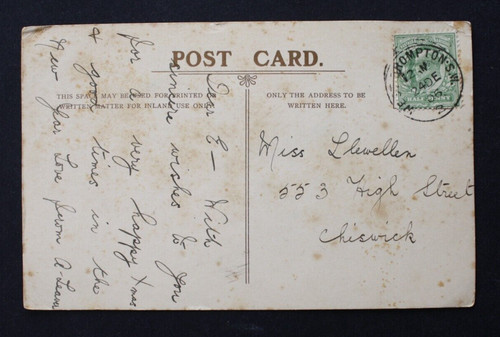 POST CARD.
THIS SPACE MAY BE USED FOR PRINTED OR
WRITTEN MATTER FOR INLAND USE ONLY.
ONLY THE ADDRESS TO BE
WRITTEN HERE.
Dear E– With
sincere wishes to you
for a very happy Xmas
& good times in the
New Year Love from A
Miss Llewellen
553 High Street
Chiswick
BROMPTON. S.W.
DE
HALF PENNY